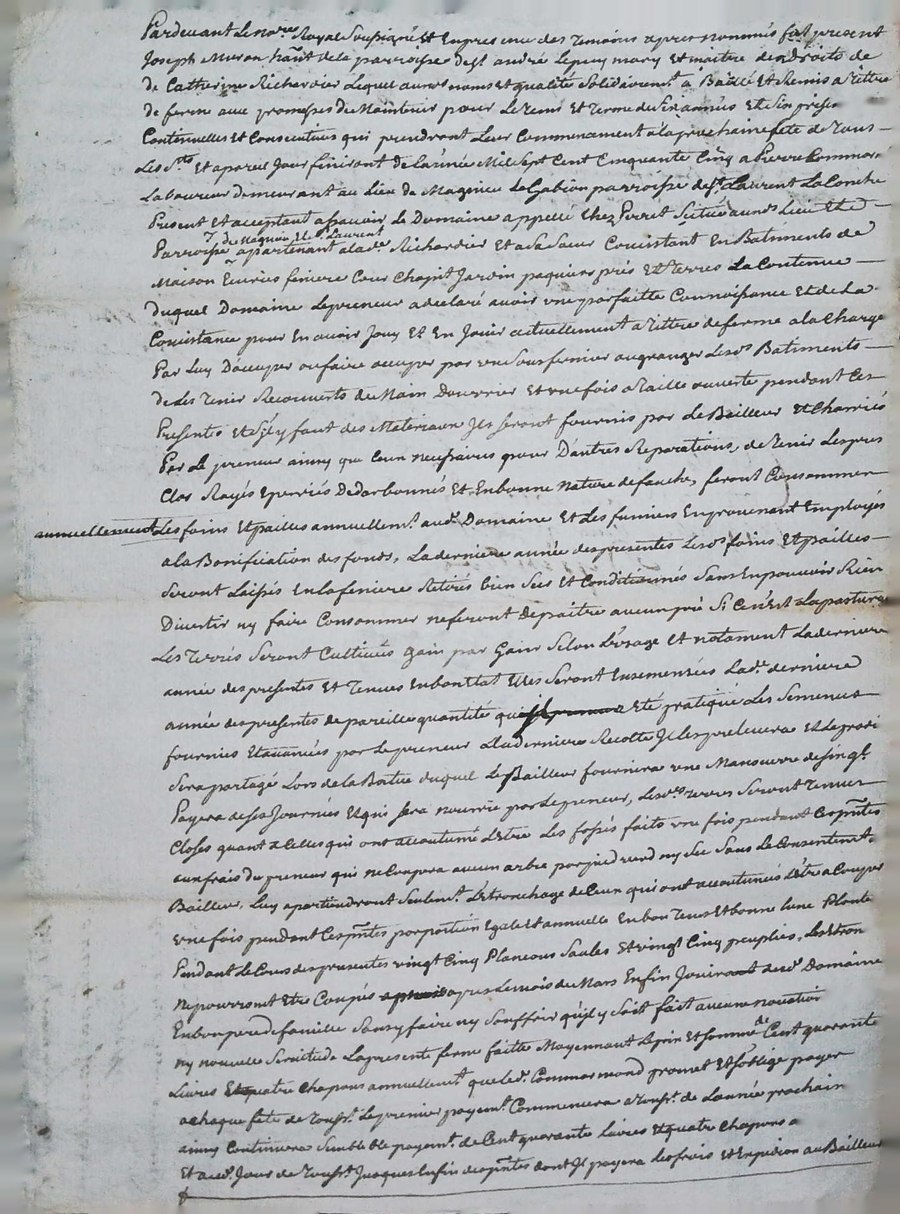 Pardevant Le no.re Royal Soussigné Et En presence des temoins apres nommés fut present
Joseph Muron hañt de la parroisse de s.t andré Lepuy mary et maitre des droits de
de Catherine Richardier Lequel aux noms et qualité Solidairem.t a Baillé Et Remis a tittre
de ferme avec promesses de Maintenir pour Le tems Et terme de Six années Et Six prises
Continuelles Et Consecutives qui prendront Leur Commencement a la prochaine fete de tous
Les S.ts Et a pareil Jour finiront de L'année Mil Sept Cent Cinquante Cinq a Pierre Commar
Laboureur demeurant au Lieu de Magnieu Le Gabion parroisse de S.t Laurent La Conche
Present Et acceptant assavoir Le Domaine appellé Chez Perret Scitué aud. Lieu Et
de Magnieu Et S.t Laurent
Parroisse apartenant a lad.e Richardier Et a Sa Sœur Consistant En Batiments de
Maison Ecuries feniere Cour Chapit Jardin paquiers prés Et terres La Contenue
duquel Domaine Le preneur a declaré avoir une parfaitte Connoissance Et de La
Consistance pour En avoir Jouy Et En Jouir actuellement a tittre de ferme a la Charge
Par Luy D'occuper ou faire occuper par un Sousfermier ou granger Les d. Batiments
de Les tenir Recouverts de Main D'ouvrier Et une fois a taille ouverte pendant Ces
Presentes Et S'il y faut des Materiaux Ils Seront fournis par Le Bailleur Et Charriés
Par Le preneur ainsy que Ceux necessaires pour D'autres Reparations, de tenir Les prés
Clos Rayés Epierrés Et En bonne Nature de fauche, feront Consommer
annuellement Les foins Et pailles annuellem.t aud. Domaine Et Les fumiers En provenant Employés
a la Bonification des fonds, La derniere année des presentes Les d. foins Et pailles
Seront Laissés En La feniere Retirés bien Secs Et Conditionnés Sans En pouvoir Rien
Divertir ny faire Consommer ne feront depaitre aucun pré Si Ce n'est La pasture
Les terres Seront Cultivées Gain par Gain Selon L'usage Et notament La derniere
année des presentes Et tenues En bon Etat Elles Seront Ensemencées Lad. derniere
année des presentes de pareille quantité qui Eté pratiqué Les Semences
fournies Et avancées par Le preneur a La derniere Recolte Il Les prelevera Et Le
Sera partagé Lors de La Battue duquel Le Bailleur fournira une Manœuvre
Payera de Ses Journées Et qui Sera nourrie par Le preneur, Les d. terres Seront tenues
Closes quant a Celles qui ont accoutumé L'etre Les fossés faits une fois pendant Ces pñtes
aux frais du preneur qui ne Coupera aucun arbre par pied verd ny Sec Sans Le Consentem.t
Bailleur, Luy apartiendront Seulem.t Le tronchage de Ceux qui ont accoutumés L'etre a Couper
une fois pendant Ces pñtes par portion Egale Et annuelle En bon tems Et bonne Lune Plante
Pendant Le Cours des presentes vingt Cinq Plançons Saules Et vingt Cinq peupliés,
Ne pourront Etre Coupés apres Le mois de Mars Enfin Jouir aud. Domaine
En bon pere de famille Sans y faire ny Souffrir qu'il y Soit fait aucune novation
ny nouvelle Servitude La presente ferme faitte Moyennant Le prix Et Somme de Cent quarante
Livres Et quatre Chapons annuellem.t que Led. Commarmond promet Et S'oblige payer
a Chaque fete de touss.ts Le premier payem.t Commencera a touss.ts de L'année prochain
ainsy Continuera Semblable payem.t de Cent quarante Livres Et quatre Chapons a
Et aud. Jour de touss.ts Jusques En fin des pñtes dont Il payera Les frais Et Expedition au Bailleur